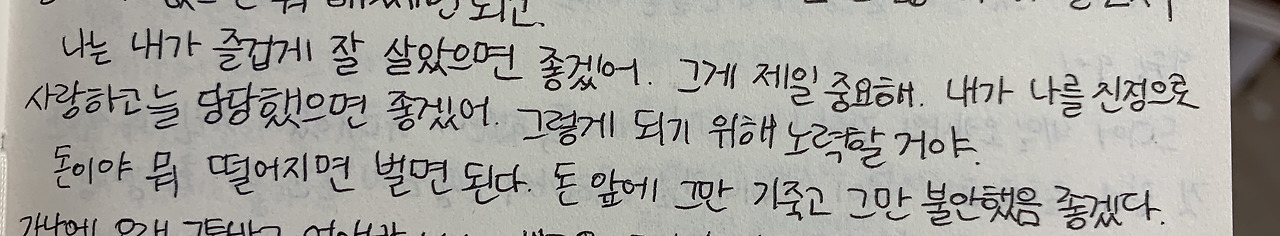 되고.
나는 내가 즐겁게 잘 살았으면 좋겠어. 그게 제일 중요해. 내가 나를 진정으로
사랑하고 늘 당당했으면 좋겠어. 그렇게 되기 위해 노력할 거야.
돈이야 뭐 떨어지면 벌면 된다. 돈 앞에 그만 기죽고 그만 불안했음 좋겠다.